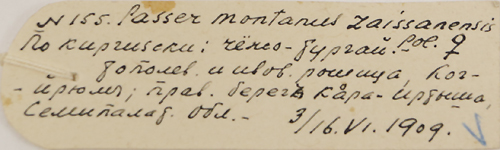 N 155. Passer montanus zaissanensis
По киргизски: чёмо-бургай. Poe. ♀
тополев. и ивов. рощица, Ког-
-йрюмъ; прав. берегъ Кара-Иртыша,
Семипалат. обл. - 3/16.VI.1909.